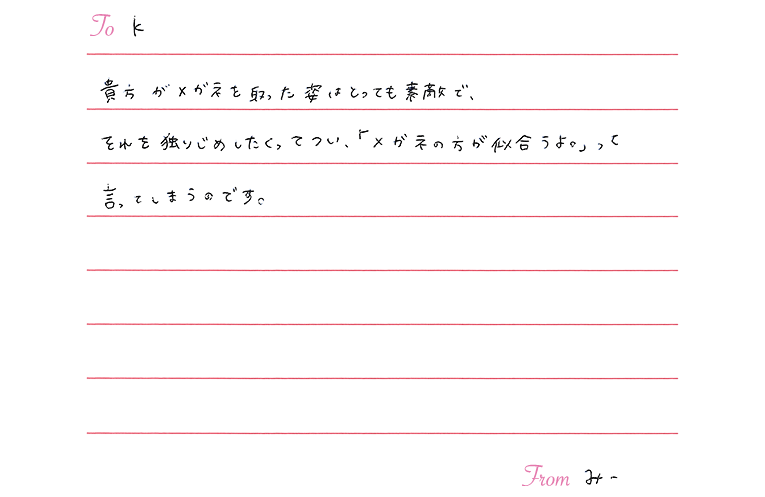 To k
貴方がメガネを取った姿はとっても素敵で、
それを独りじめしたくってつい、「メガネの方が似合うよ。」って
言ってしまうのです。
From みー